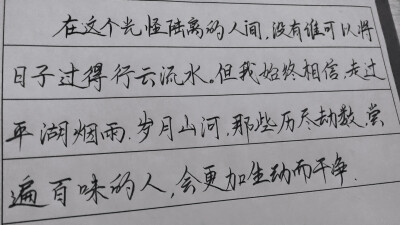 在这个光怪陆离的人间,没有谁可以将
日子过得行云流水。但我始终相信,走过
平湖烟雨,岁月山河,那些历尽劫数,尝
遍百味的人,会更加生动而干净.